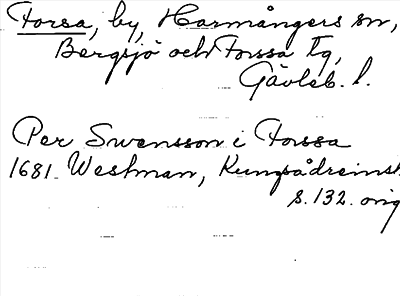 Forsa, by, Harmångers sn,
Bergsjö och Forssa tg,
Gävleb. l.
Per Swensson i Forssa
1681. Westman, Kungsådreinst
s. 132. orig